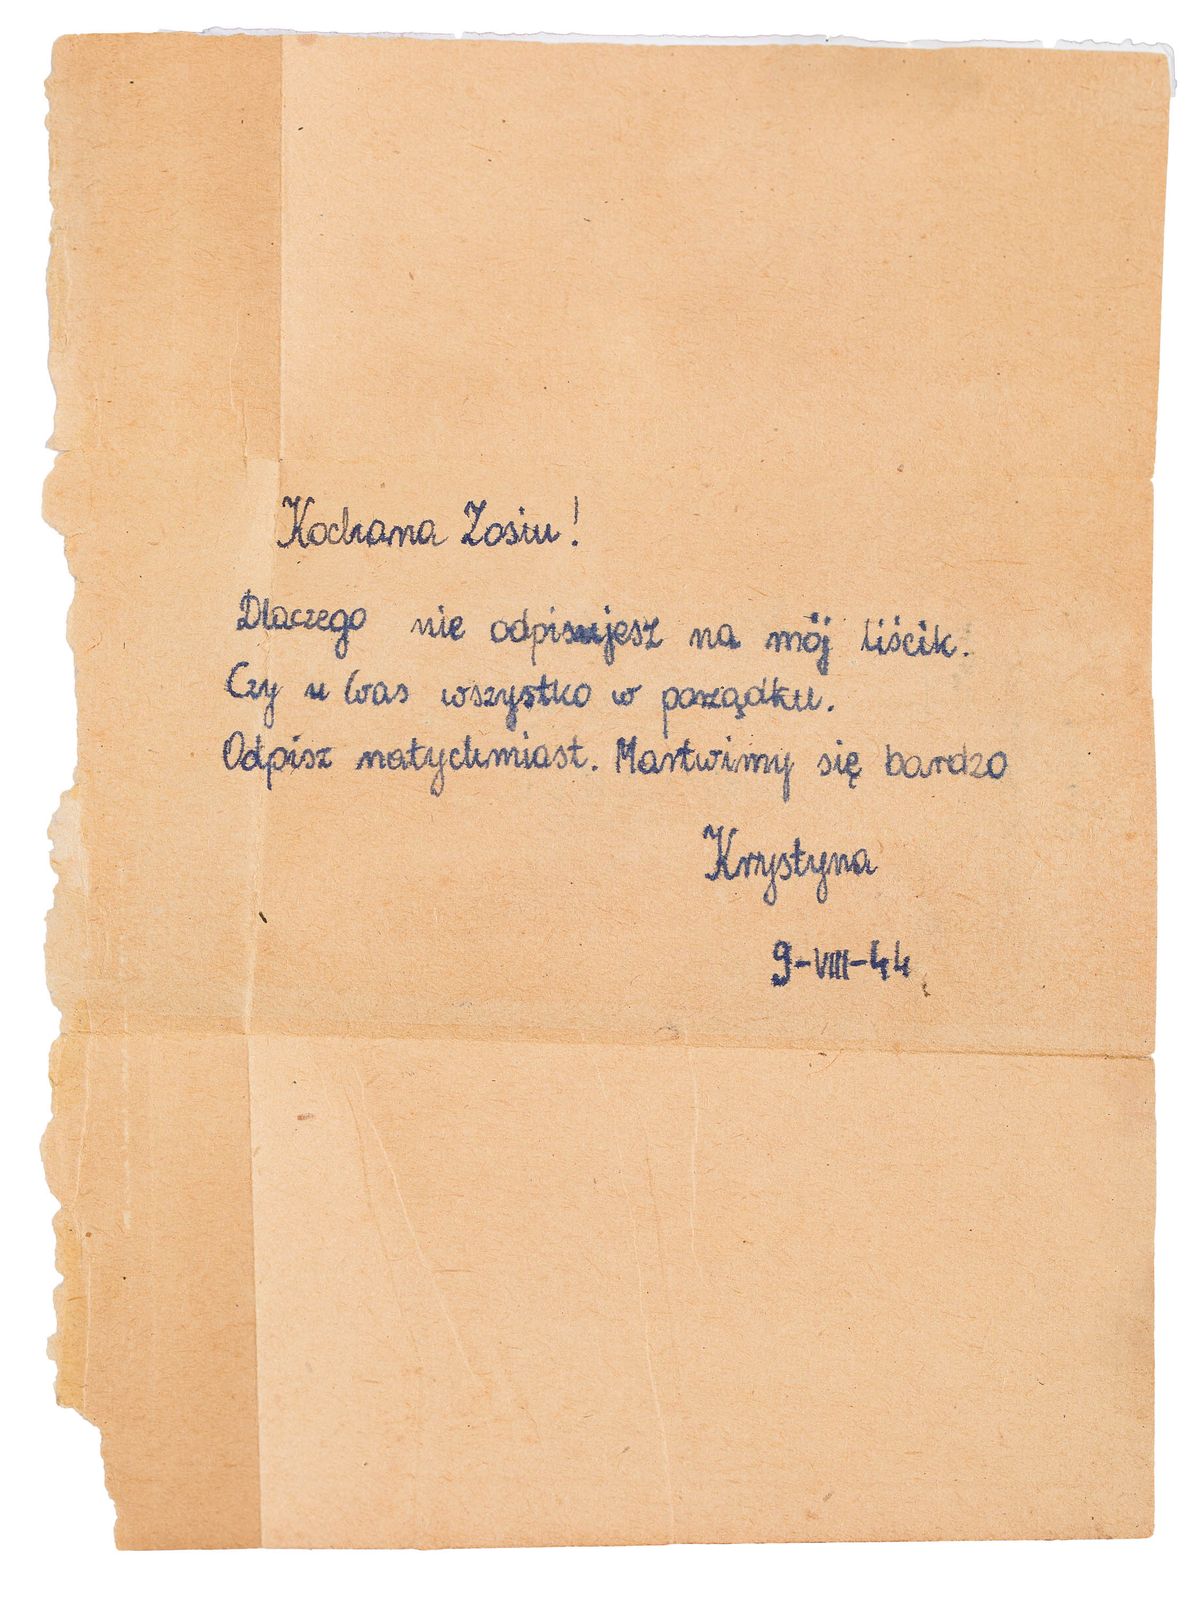 Kochana Zosiu!
Dlaczego nie odpisujesz na mój liścik.
Czy u Was wszystko w porządku.
Odpisz natychmiast. Martwimy się bardzo
Krystyna
9-VIII-44